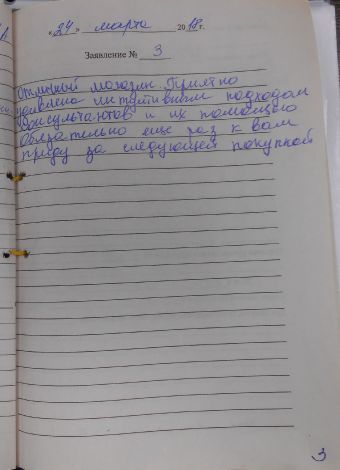 «24» марта 2018 г.
Заявление № 3
Отличный магазин. Приятно
удивлена интуитивным подходом
консультантов и их помощью
Обязательно еще раз к вам
приду за следующей покупкой
3